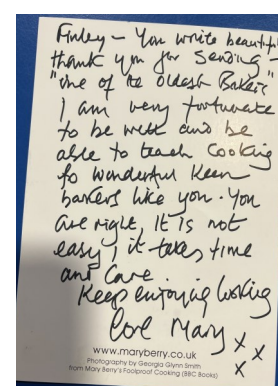 Finley – You write beautiful
thank you for sending –
"one of the oldest Bakers"
I am very fortunate
to be well and be
able to teach Cooking
to wonderful keen
bakers like you. You
are right, It is not
easy, it takes time
and Care
Keep enjoying
love Mary x x
x
www.maryberry.co.uk
Photography by Georgia Glynn Smith
from Mary Berry's Foolproof Cooking (BBC Books)